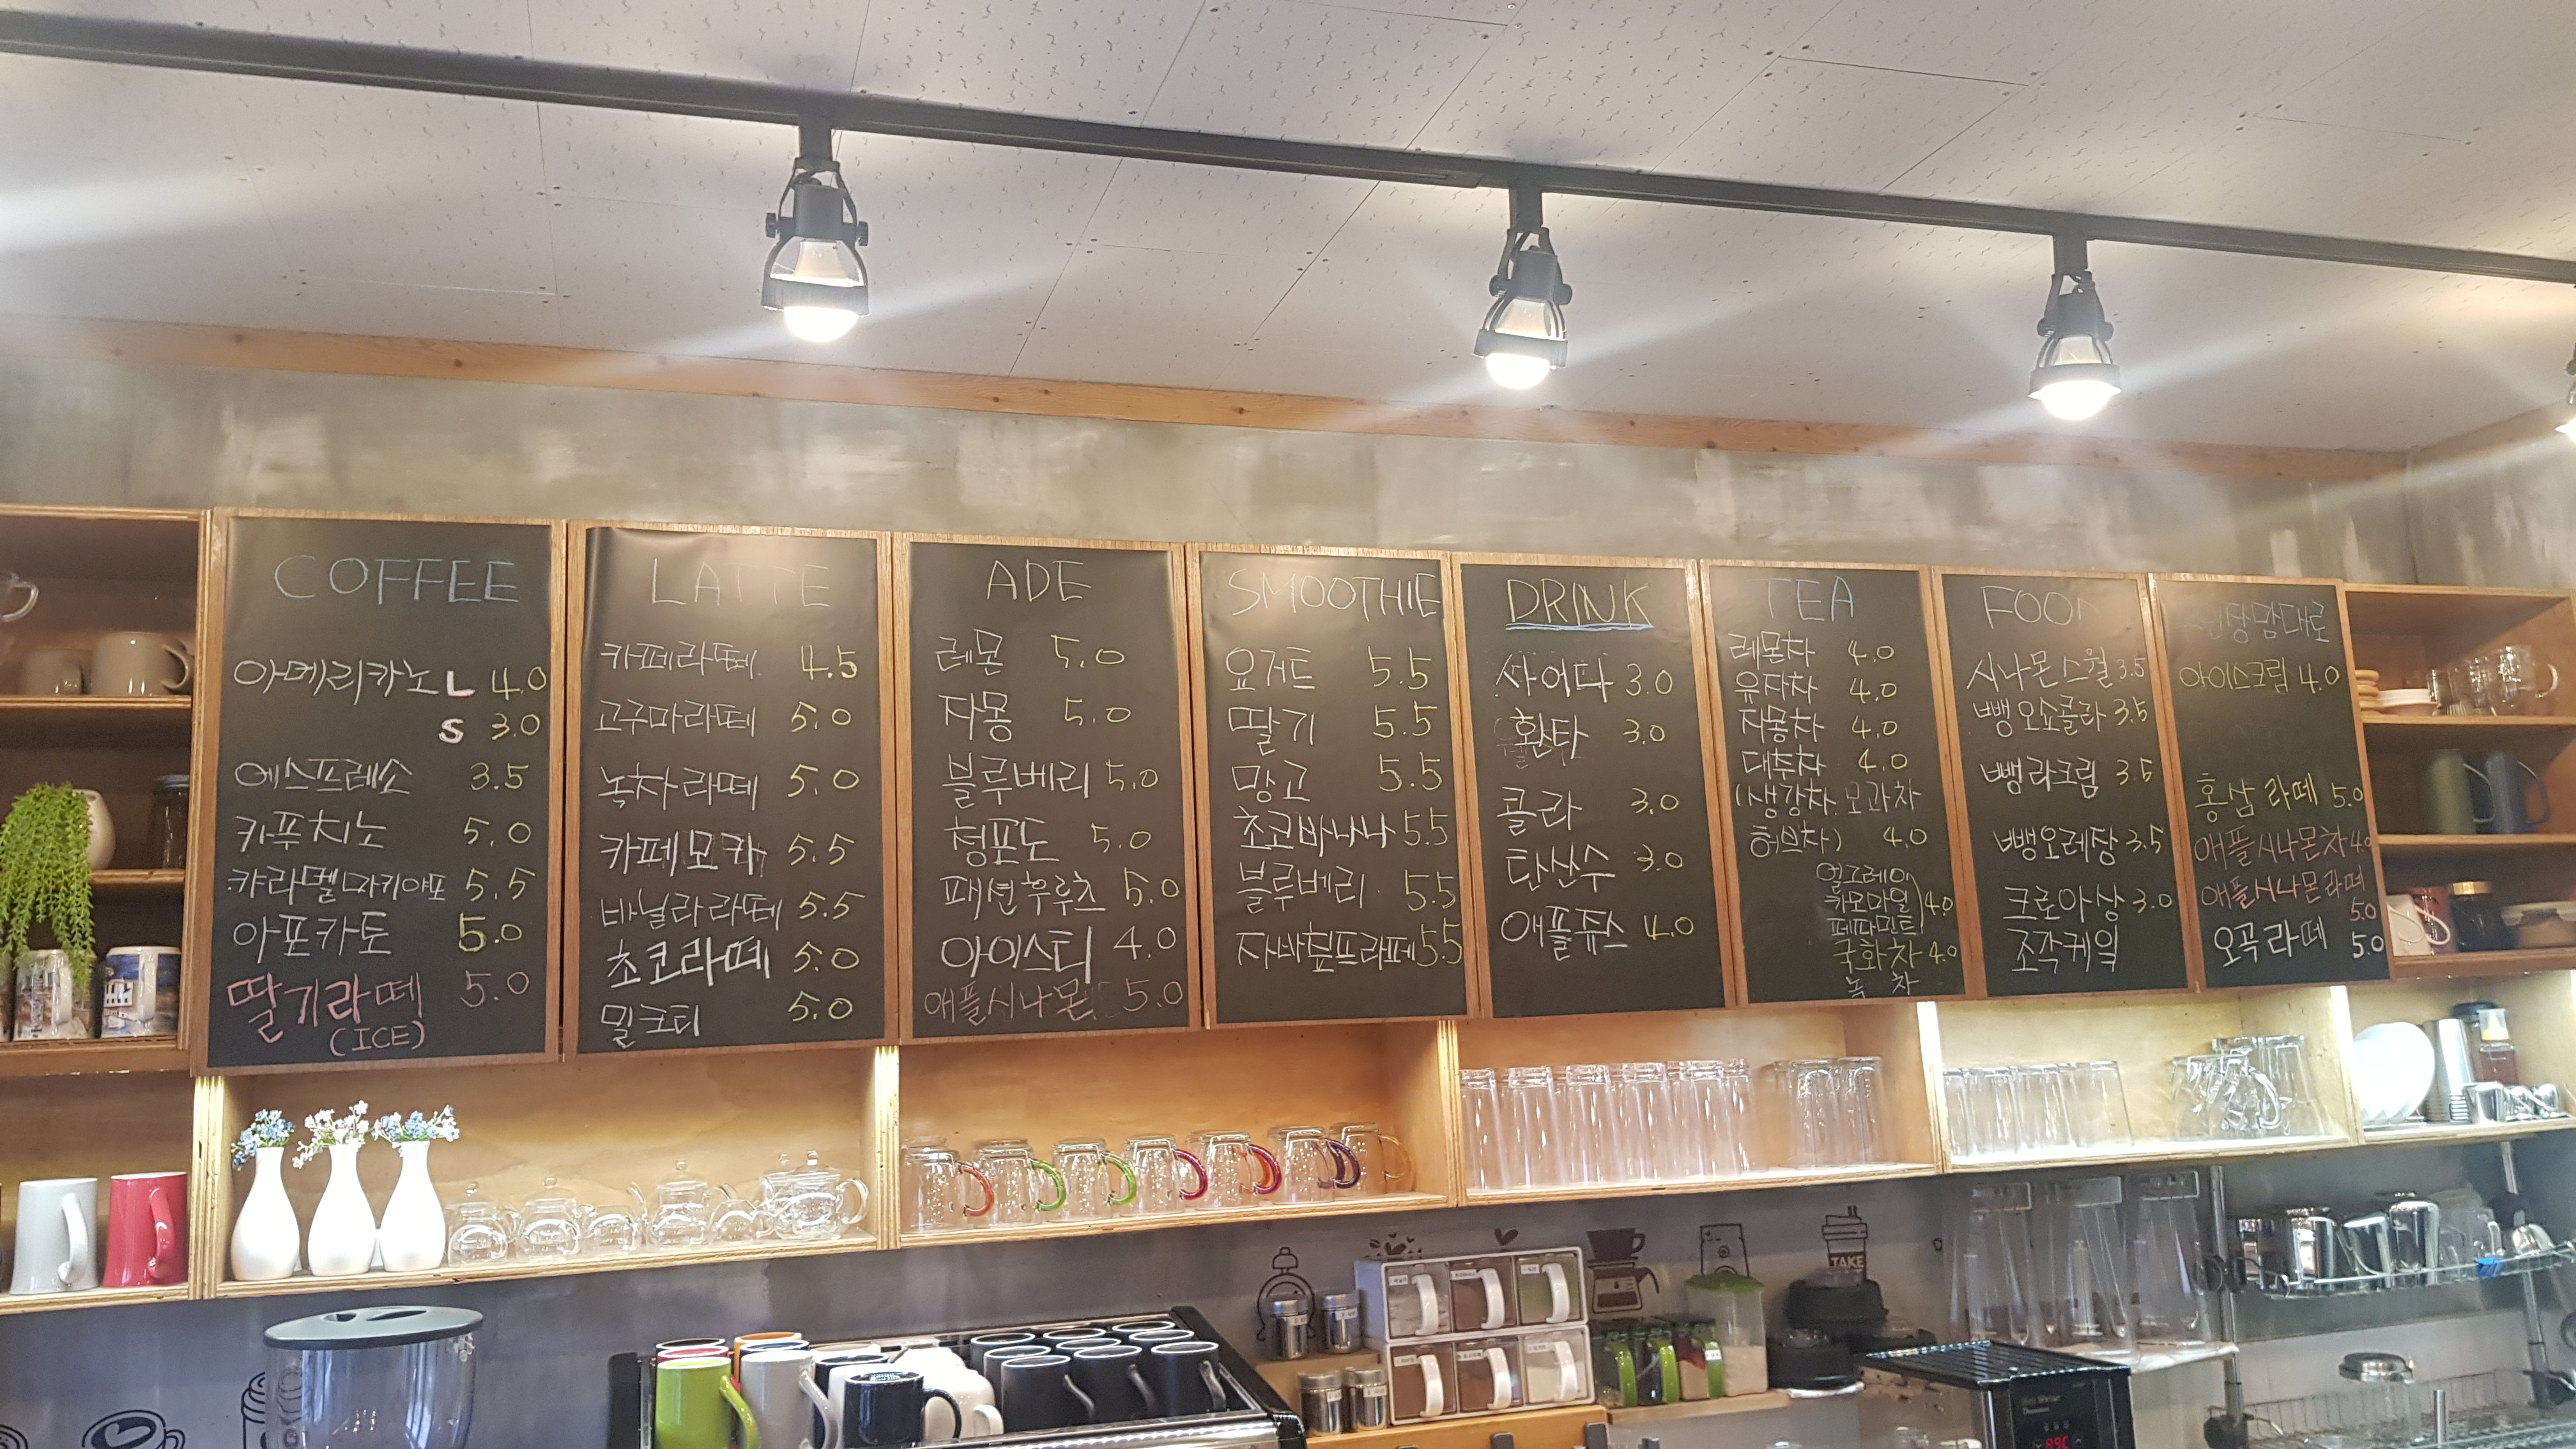 COFFEE
아메리카노 L 4.0
S 3.0
에스프레소 3.5
카푸치노 5.0
캬라멜마키야또 5.5
아포카토 5.0
딸기라떼 5.0
(ICE)
LATTE
카페라떼 4.5
고구마라떼 5.0
녹차라떼 5.0
카페모카 5.5
바닐라라떼 5.5
초코라떼 5.0
밀크티 5.0
ADE
레몬 5.0
자몽 5.0
블루베리 5.0
청포도 5.0
패션후루츠 5.0
아이스티 4.0
애플시나몬 5.0
SMOOTHIE
요거트 5.5
딸기 5.5
망고 5.5
초코바나나 5.5
블루베리 5.5
자바칩프라페 5.5
DRINK
싸이다 3.0
환타 3.0
콜라 3.0
탄산수 3.0
애플쥬스 4.0
TEA
레몬차 4.0
유자차 4.0
자몽차 4.0
대추차 4.0
(생강차 모과차
허브차) 4.0
얼그레이
카모마일 4.0
페파민트
국화차 4.0
녹차
FOOD
시나몬스월 3.5
뺑오쇼콜라 3.5
뺑라크림 3.5
뺑오레장 3.5
크로아상 3.0
조각케익
맘대로
아이스크림 4.0
홍삼라떼 5.0
애플시나몬차 4.0
애플시나몬라떼
5.0
오곡라떼 5.0
TAKE